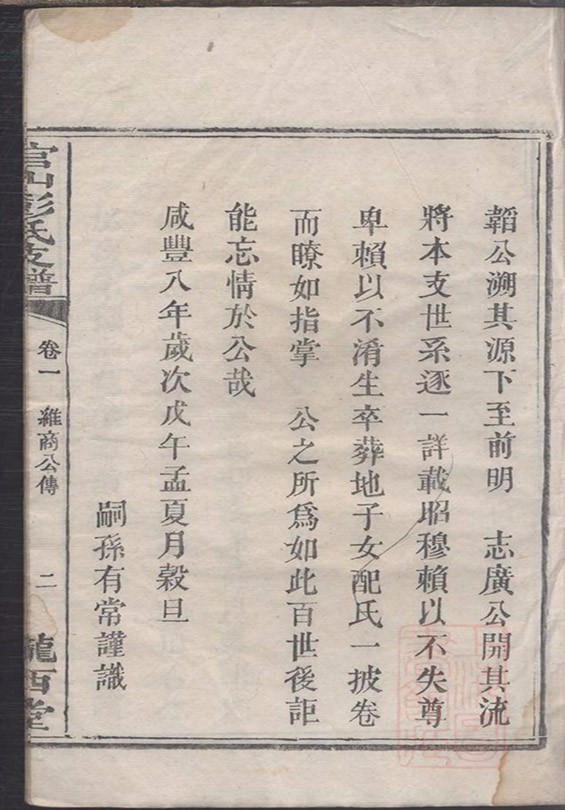 韜公溯其源下至前明　志廣公開其流
將本支世系逐一詳載昭穆賴以不失尊
卑賴以不淆生卒葬地子女配氏一披卷
而瞭如指掌　公之所為如此百世後詎
能忘情於公哉
咸豐八年歲次戊午孟夏月穀旦
嗣孫有常謹識
官山彭氏支譜
卷一
維商公傳
二
隴西堂